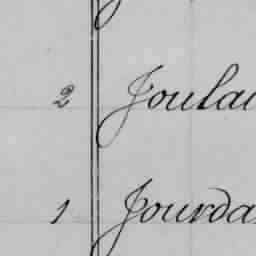 2 Joulai
1 Jourda